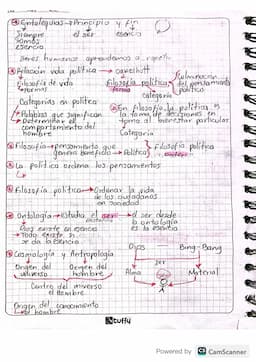 Ontologuias → Principio y fin
Siempre el ser esencia
somos
esencia
Seres humanos aprendemos a
Relación vida política →
Filosofía de vida filosofía política culminación
→ formas forma del pensamiento
político
categoria
Categorias en política
→ Palabras que significan
→ Determinar el
comportamiento del
hombre
En filosofía la política es
la toma de decisiones en
torno al bienestar particular
Categoria
Filosofía → pensamiento que
genera beneficio → Política Filosofía política
La política ordena los pensamientos
Filosofía política → Ordenar la vida
de los ciudadanos
en sociedad
Ontología → Estudia el ser → el ser desde
la ontología
es la esencia
Dios existe en esencia
→ Todo existe si
se da la esencia
Dios Bing-Bang
ser
Cosmología y Antropología
Origen del Origen del
universo hombre
Alma Material
Centro del universo
el hombre
Origen del conocimiento
del hombre
tuffy
Powered by CS CamScanner